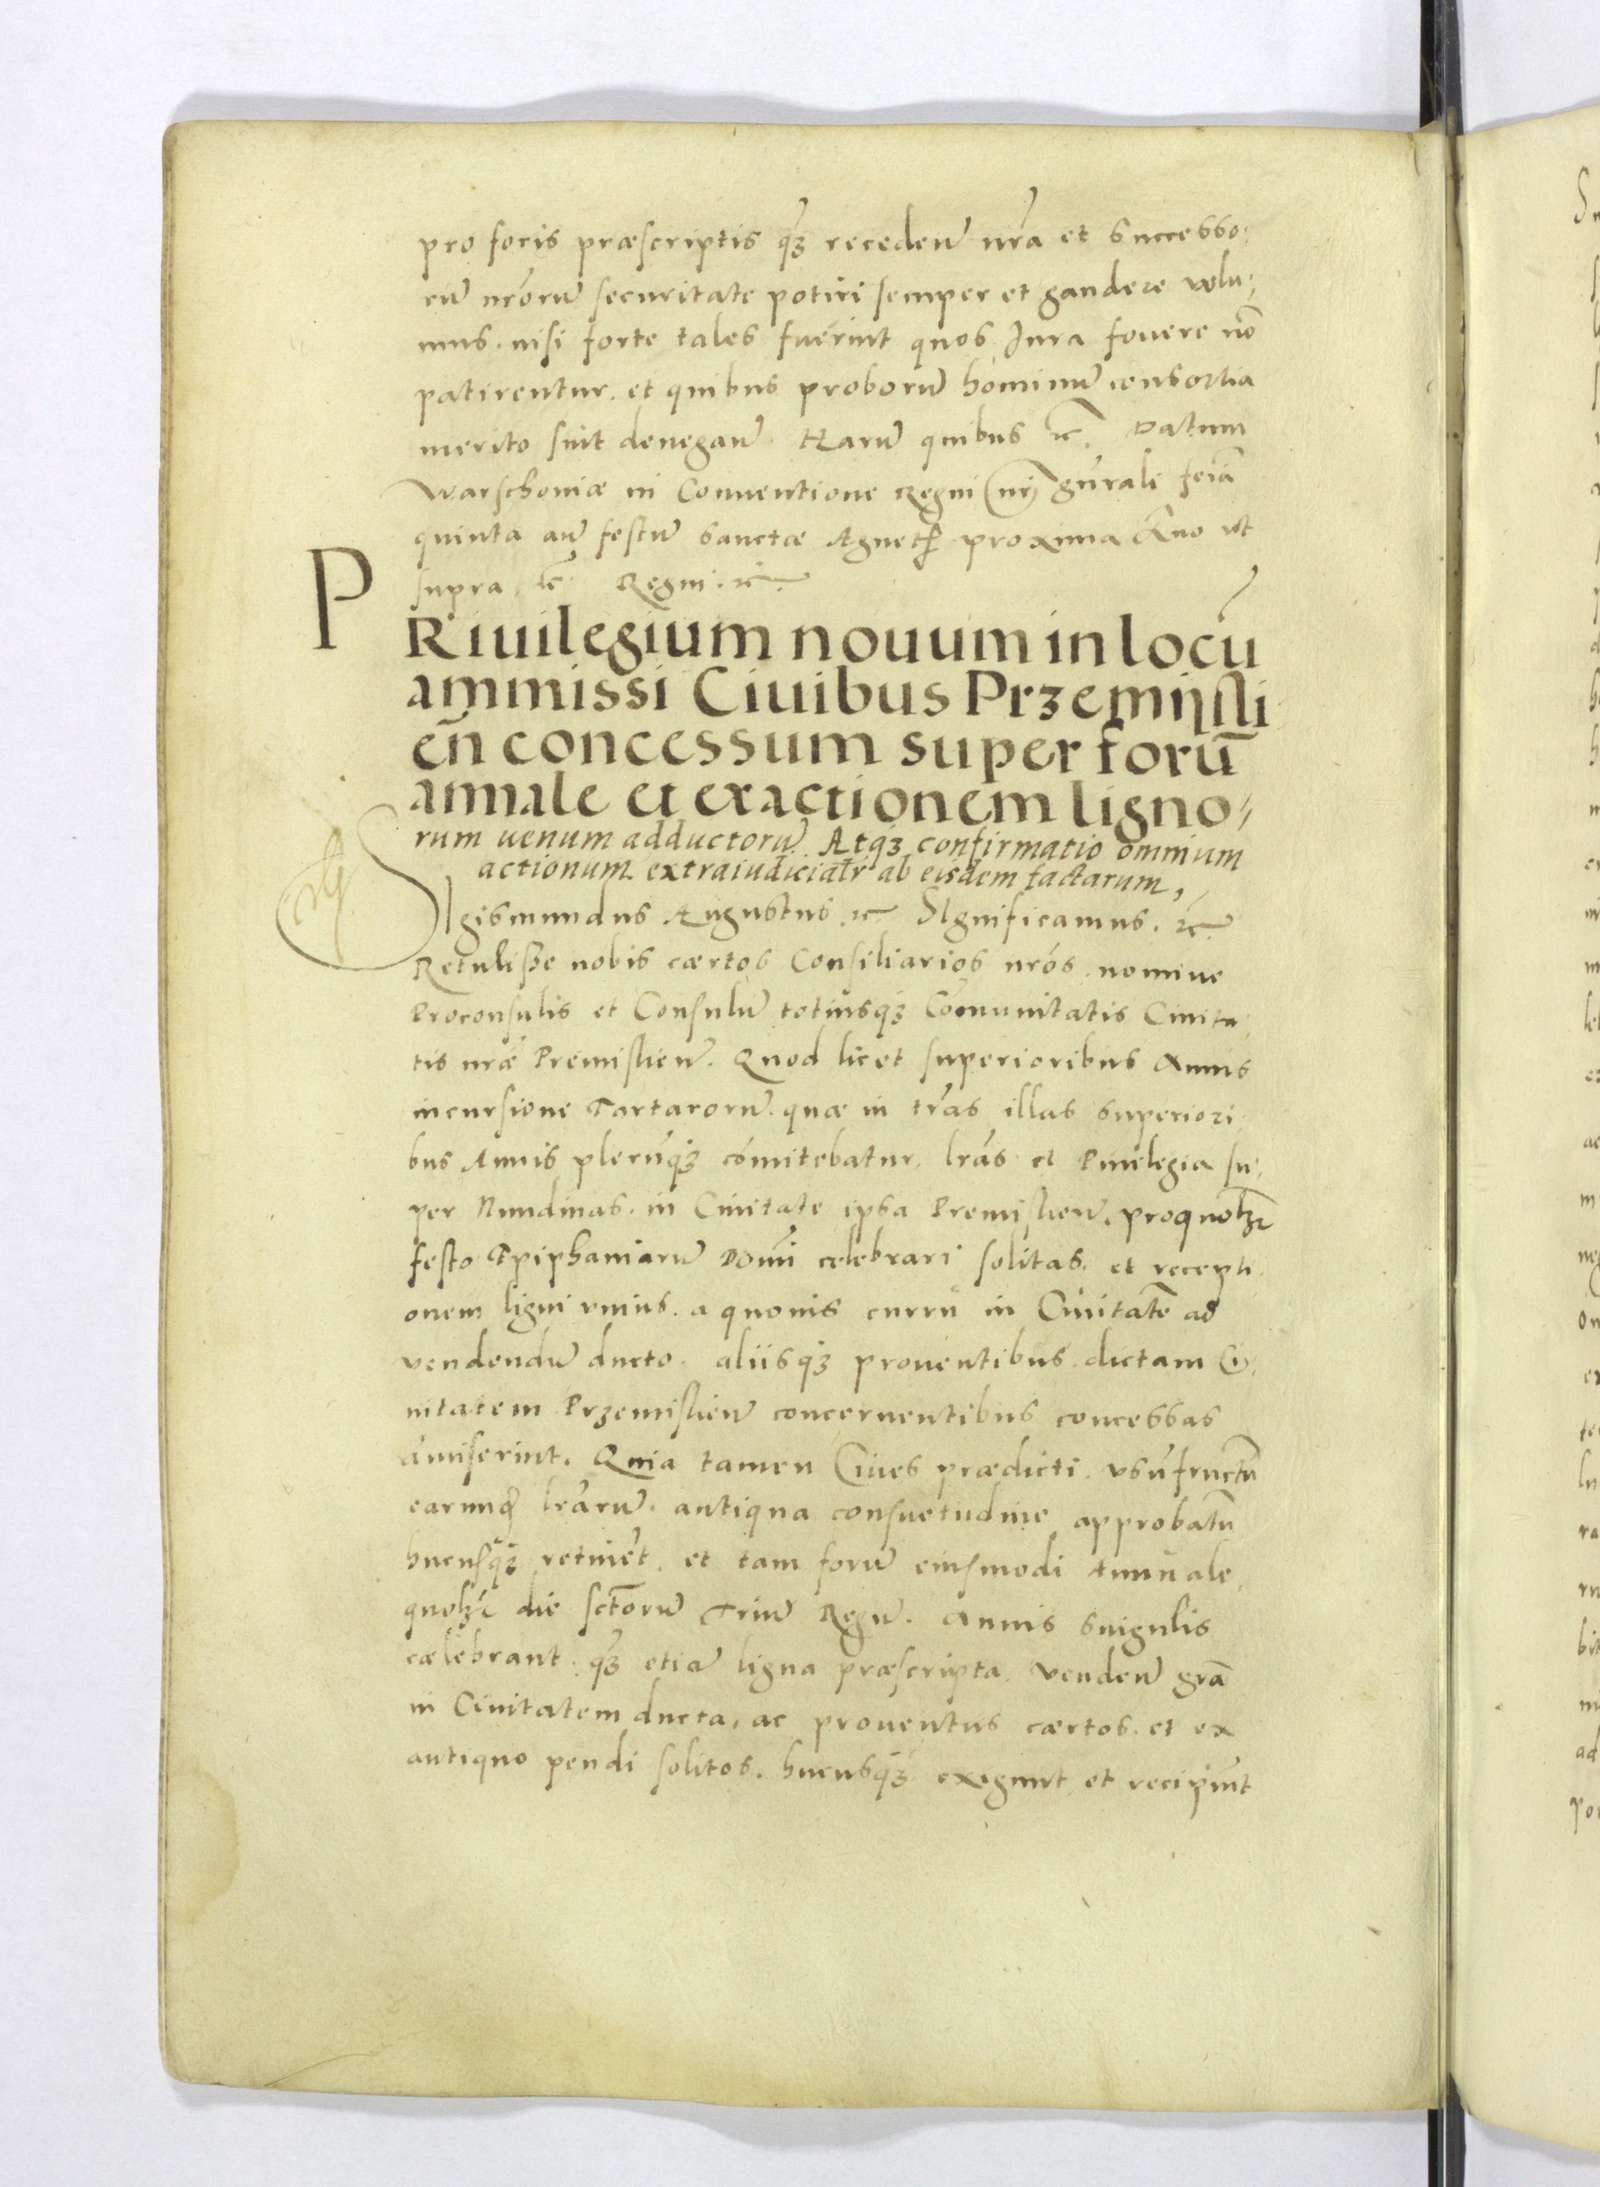 pro foris præscriptis q̃ꝫ recedeñ nr̃a et successo-
rũ nr̃orũ securitate potiri semper et gaudere volu-
mus. nisi forte tales fuerint quos Iura fouere nõ
patirentur. et quibus proborũ hominũ consortia
merito sint denegañ. Harũ quibus ꝛc̃. Datum
Warschouiæ in Conuentione Regni nr̃j gñrali feria
quinta añ festũ Sanctæ Agnet proxima Anno vt
supra ꝛc̃ Regni. ꝛc̃.
PRiuilegium nouum in locũ
ammissi Ciuibus Przemijsli
eñ concessum super forũ
annale et exactionem ligno-
rum uenum adductorũ. Atqꝫ confirmatio omnium
actionum extraiudicialr̃ ab eisdem factarum,
SIgismundus Augustus. ꝛc̃ SIgnificamus. ꝛc̃
Retulisse nobis cærtos Consiliarios nr̃os. nomine
Proconsulis et Consulũ totiusqꝫ Cõmunitatis Ciuita-
tis nr̃æ Premislieñ. Quod licet superioribus Annis
incursione Tartarorũ. quæ in tr̃as illas superiori-
bus Annis plerũqꝫ cõmitebatur. lr̃as et Priuilegia su-
per Nundinas. in Ciuitate ipsa Premislieñ. pro quolꝫt
festo Epiphaniarũ Domĩ celebrari solitas. et recepti-
onem ligni vnius. a quouis currũ in Ciuitatẽ ad
vendendũ ducto. aliisqꝫ prouentibus. dictam Ci-
uitatem Przemislieñ concernentibus concessas
amiserint. Quia tamen Ciues prædicti. vsũfructũ
earundẽ lr̃arũ. antiqua consuetudine approbatũ
hucusqꝫ retinẽt. et tam forũ eiusmodi Annũale
quolꝫt die sctorũ Triũ Regũ. Annis singulis
cælebrant q̃ꝫ etiã ligna præscripta. vendeñ grã
in Ciuitatem ducta, ac prouentus cærtos. et ex
antiquo pendi solitos. hucusqꝫ exigunt et recipiũt